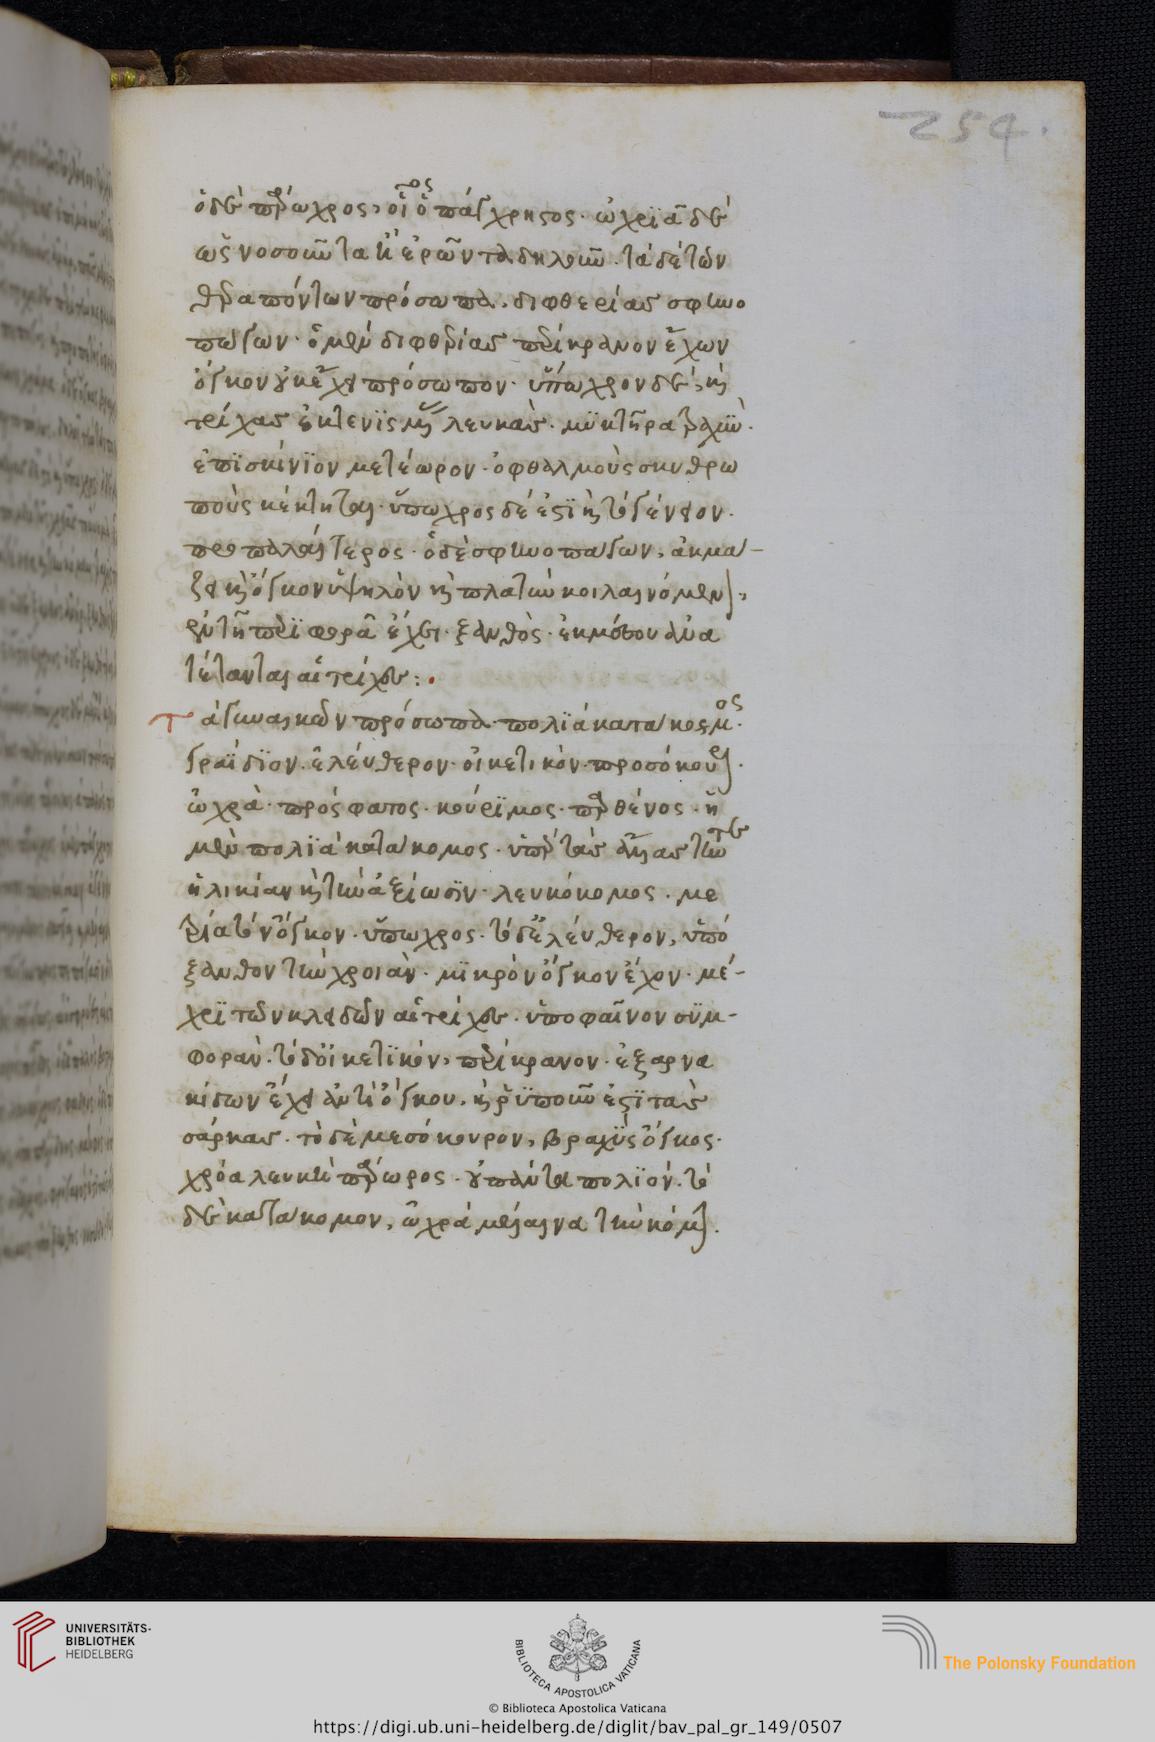 254.
ὁ δὲ πάρωχρος, οἷος ὁ πάγχρηστος. ὠχριᾶ δὲ
ὡς νοσοῦντα καὶ ἐρῶντα δηλοῦν. τὰ δὲ τῶν
θεραπόντων πρόσωπα. διφθερίας σφηνο
πώγων. ὁ μὲν διφθερίας περίκρανον ἔχων
ὄγκον οὐκ ἔχει πρόσωπον. ὕπωχρον δὲ, καὶ
τρίχας ἐκτενισμένας λευκὰς. μυκτῆρα τραχὺν.
ἐπισκύνιον μετέωρον. ὀφθαλμοὺς σκυθρω
ποὺς κέκτηται. ὕπωχρος δέ ἐστι καὶ τὸ γένειον.
προπαλαίτερος. ὁ δὲ σφηνοπώγων, ἀκμά-
ζει καὶ ὄγκον ὑψηλὸν καὶ πλατὺν κοιλαινόμενον,
ἐν τῇ περιφορᾷ ἔχει. ξανθὸς. ἐκ μέσου ἀνα
τέτανται αἱ τρίχες:.
Τὰ γυναικῶν πρόσωπα. πολιὰ κατάκομος.
γραΐδιον. ἐλεύθερον. οἰκετικὸν.
ὠχρὰ. πρόσφατος. κούριμος. παρθένος. ἡ
μὲν πολιὰ κατάκομος. ὑπὲρ τὰς ἄλλας τήν τε
ἡλικίαν καὶ τὴν ἀξίωσιν. λευκόκομος. με
τρία τὸν ὄγκον. ὕπωχρος. τὸ δ' ἐλεύθερον, ὑπό
ξανθον τὴν χροιὰν. μικρὸν ὄγκον ἔχον. μέ-
χρι τῶν κλειδῶν αἱ τρίχες. ὑποφαῖνον συμ-
φορὰν. τὸ δ' οἰκετικὸν, περίκρανον. ἐξ ἀρνα
κίδων ἔχει ἀντὶ ὄγκου. καὶ ῥυποῦν ἐστὶ τὰς
σάρκας. τὸ δὲ μεσόκουρον, βραχὺς ὄγκος.
χρόα λευκὴ πάρωρος. οὐ πάντα πολιόν. τὸ
δὲ κατάκομον, ὠχρά μέλαινα τὴν κόμην.
UNIVERSITÄTS-
BIBLIOTHEK
HEIDELBERG
BIBLIOTECA APOSTOLICA VATICANA
The Polonsky Foundation
© Biblioteca Apostolica Vaticana
https://digi.ub.uni-heidelberg.de/diglit/bav_pal_gr_149/0507